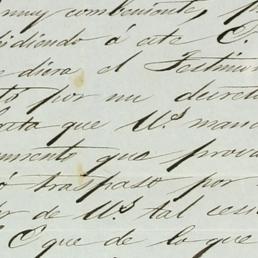 muy conveniente, p
pidiendo á este C.
e diera el Testimon
to por un decreto
rita que Us. man
umento que prov
ó traspaso por
or de Us. tal ces
C que de lo que